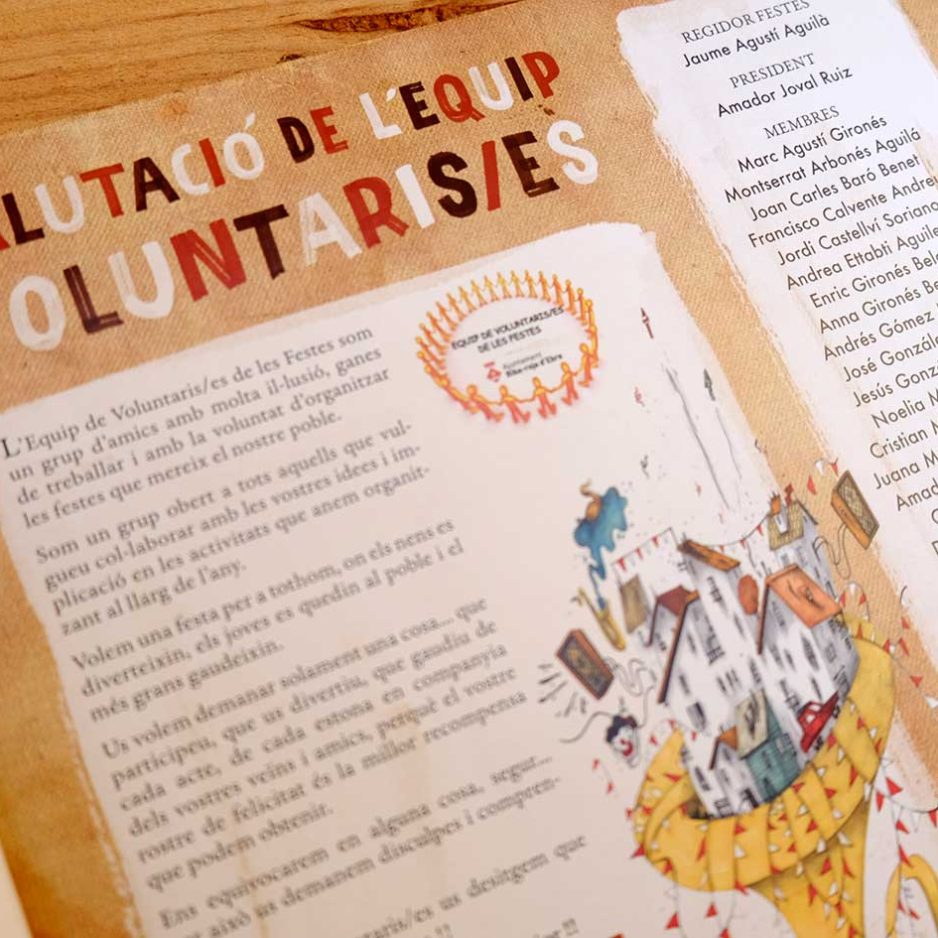 LUTACIÓ DE L'EQUIP
OLUNTARIS/ES
L'Equip de Voluntaris/es de les Festes som
un grup d'amics amb molta il·lusió, ganes
de treballar i amb la voluntat d'organitzar
les festes que mereix el nostre poble.
Som un grup obert a tots aquells que vul-
gueu col·laborar amb les vostres idees i im-
plicació en les activitats que anem organit-
zant al llarg de l'any.
Volem una festa per a tothom, on els nens es
diverteixin, els joves es quedin al poble i el
més grans gaudeixin.
Us volem demanar solament una cosa... que
participeu, que us divertiu, que gaudiu de
cada acte, de cada estona en companyia
dels vostres veïns i amics, perquè el vostre
rostre de felicitat és la millor recompensa
que podem obtenir.
Ens equivocarem en alguna cosa, segur...
per això us demanem disculpes i compren-
us desitgem que
EQUIP DE VOLUNTARIS/ES
DE LES FESTES
Ajuntament
Riba-roja d'Ebre
REGIDOR FESTES
Jaume Agustí Aguilà
PRESIDENT
Amador Joval Ruiz
MEMBRES
Marc Agustí Gironés
Montserrat Arbonés Aguilá
Joan Carles Baró Benet
Francisco Calvente Andreu
Jordi Castellví Soriano
Andrea Ettabti Aguile
Enric Gironés Bel
Anna Gironés Be
Andrés Gómez
José Gonzále
Jesús Gonz
Noelia M
Cristian M
Juana M
Amad